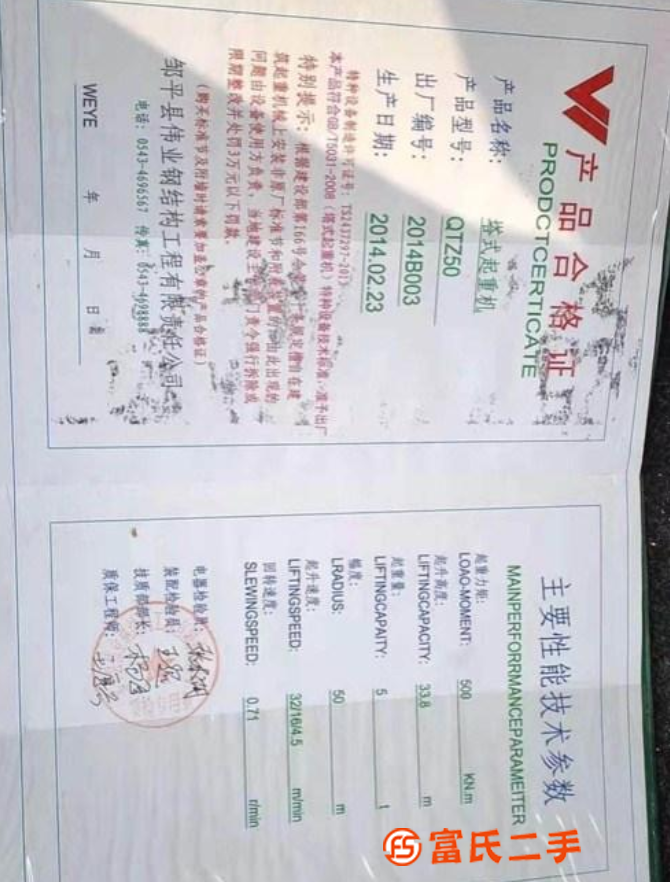 产品合格证
PRODCTCERTICATE
产品名称: 塔式起重机
产品型号: QTZ50
出厂编号: 2014B003
生产日期: 2014.02.23
特种设备制造许可证号: TS2437297-2017
本产品符合GB/T5031-2008《塔式起重机》特种设备技术标准,准予出厂
特别提示: 根据建设部第166号令
筑起重机械上安装非原厂标准节和附着装置 由此出现的
问题由设备使用方负责,当地建设主 门责令强行拆除或
限期整改并处罚3万元以下罚款。
(购买标准节及附墙时请索要加盖公章的产品合格证)
邹平县伟业钢结构工程有限责任公司
电话: 0543-4696567 传真: 0543-4698888
WEYE 年 月 日
主要性能技术参数
MAINPERFORRMANCEPARAMEITER
起重力矩:
LOAO-MOMENT: 500 KN.m
起升高度:
LIFTINGCAPACITY: 33.8 m
起重量:
LIFTINGCAPAITY: 5 t
幅度:
LRADIUS: 50 m
起升速度:
LIFTINGSPEED: 32/16/4.5 m/min
回转速度:
SLEWINGSPEED: 0.71 r/min
电器检验员:
装配检验员:
技质部部长:
质保工程师:
富氏二手